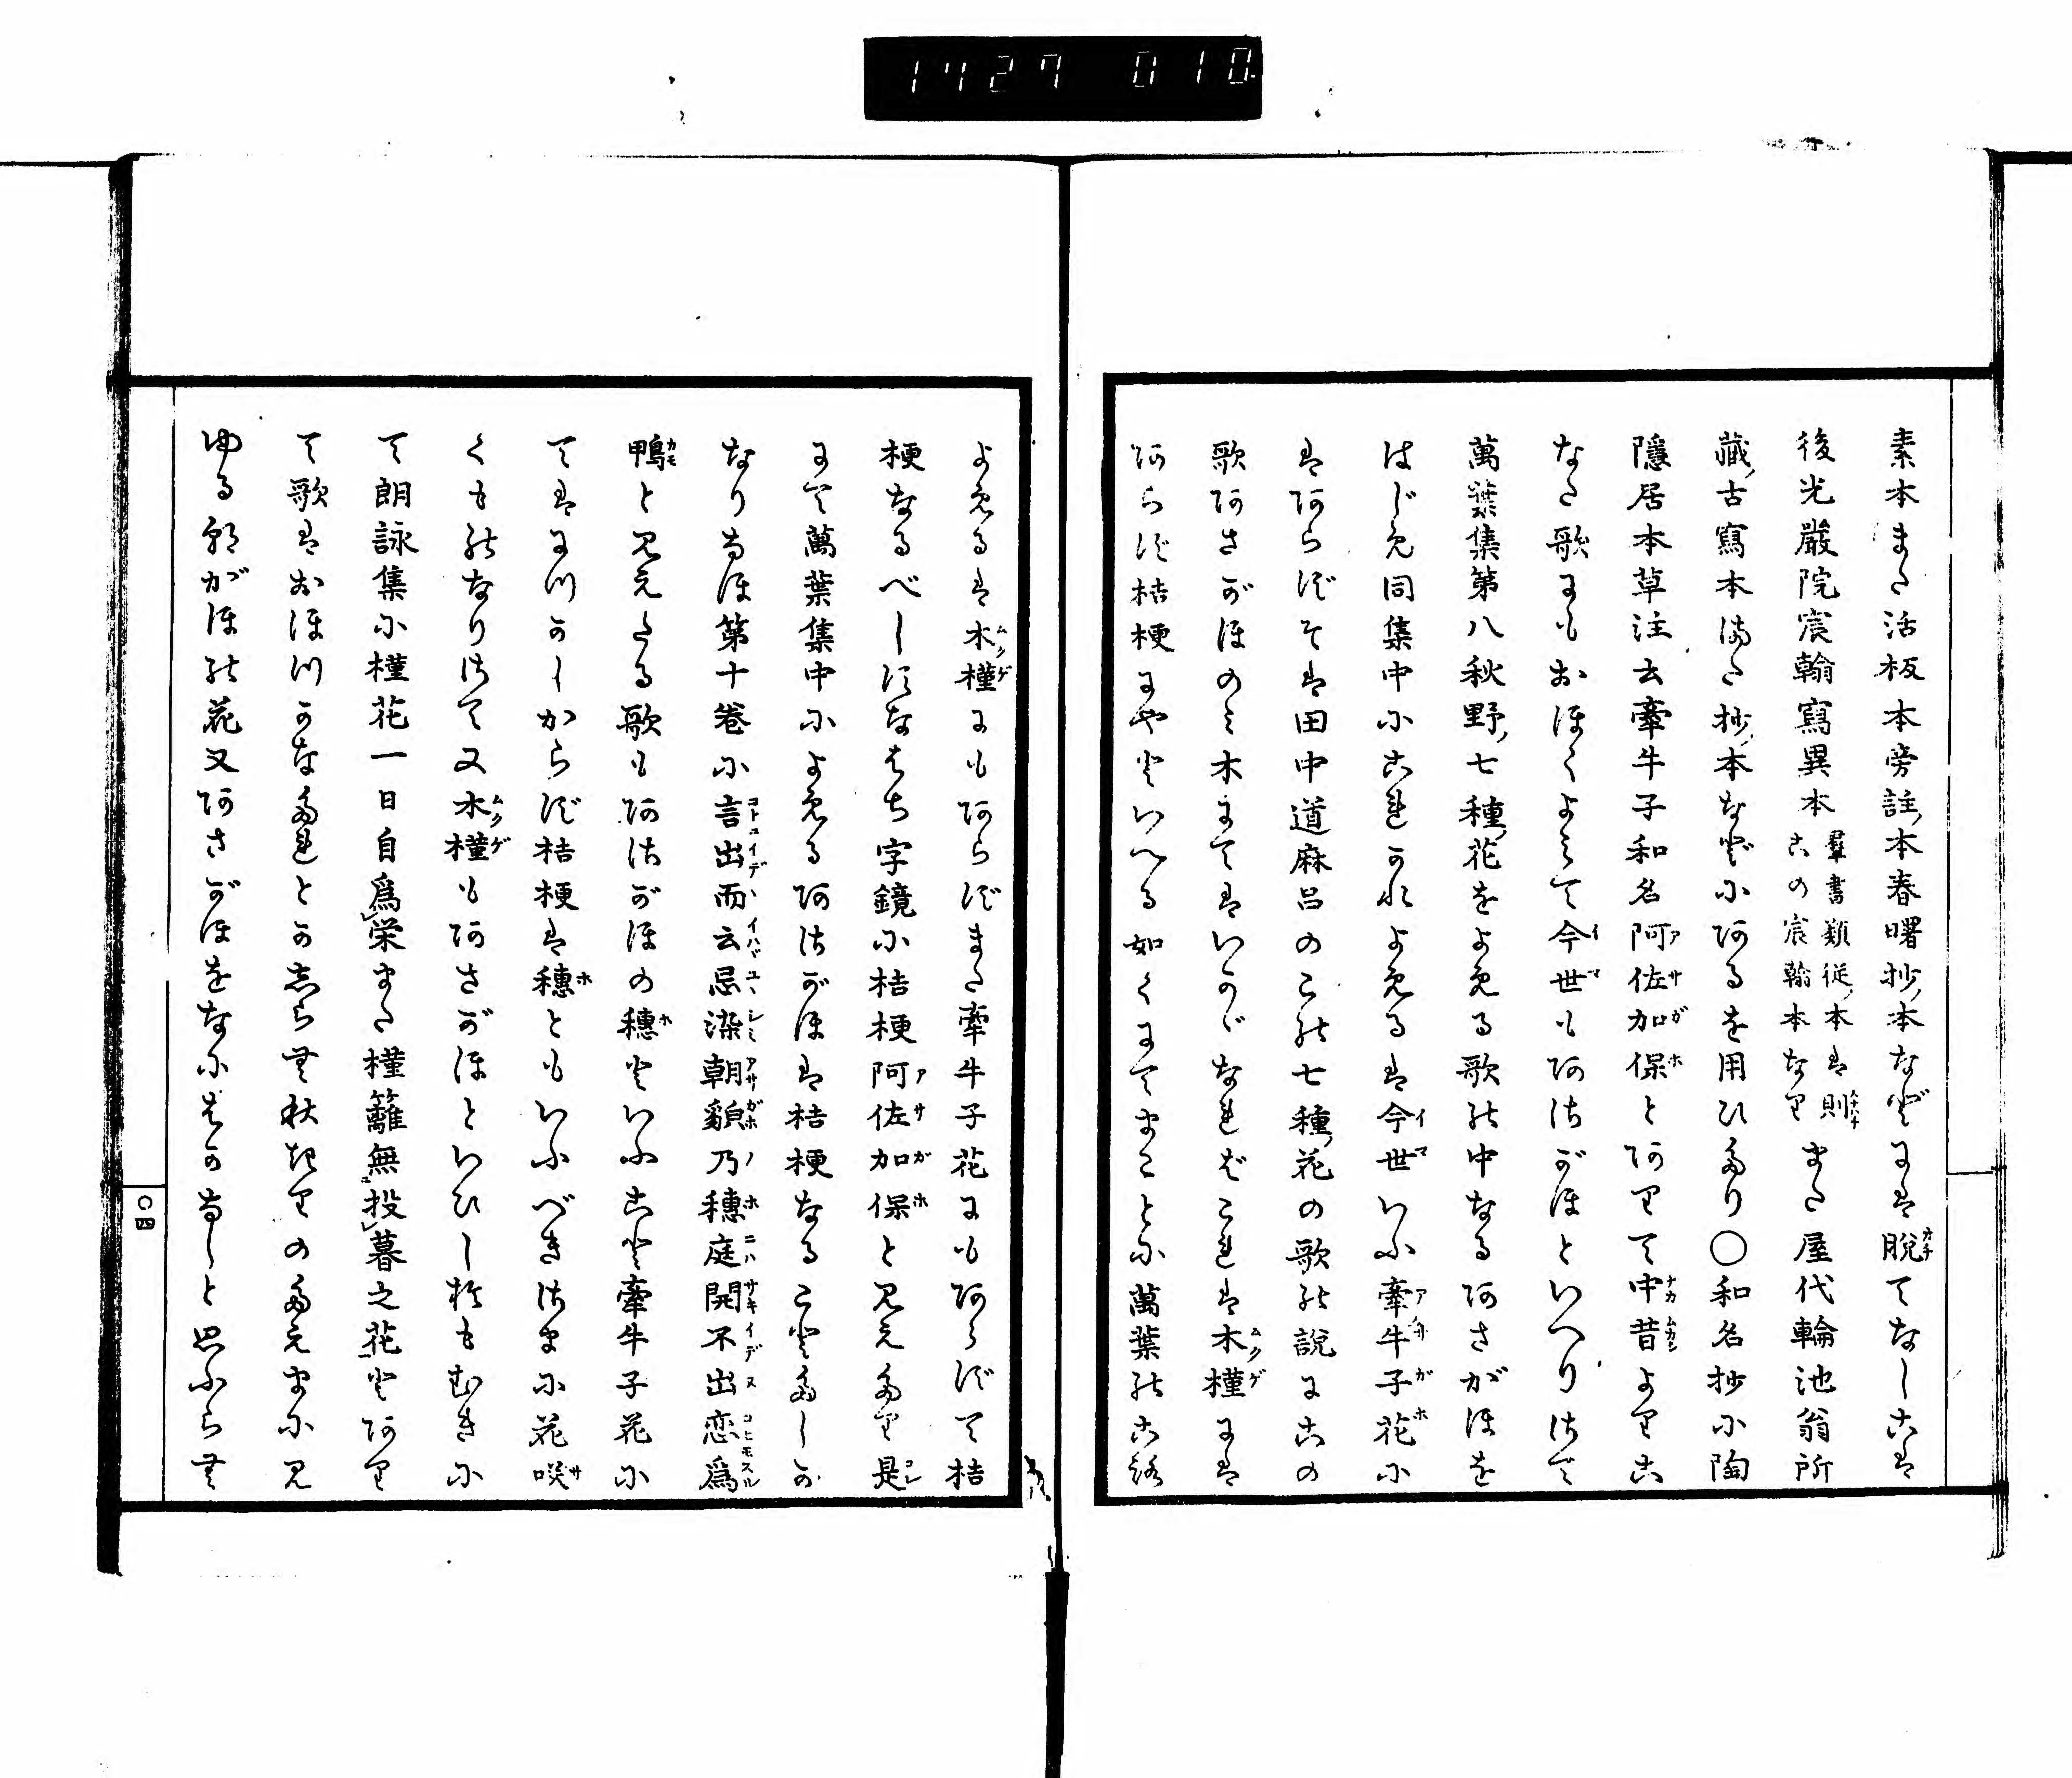 1727 010
素本また活板本旁註本春曙抄本などには脱てなしこは
後光嚴院宸翰寫異本羣書類從本は則この宸翰本なりまた屋代輪池翁所
藏古寫本また抄本などにあるを用ひたり〇和名抄に陶
隱居本草注云牽牛子和名阿佐加保とありて中昔よりこ
なた歌にもおほくよみて今世もあさがほといへりさて
萬葉集第八秋野七種花をよめる歌の中なるあさがほを
はじめ同集中にこれかれよめるは今世いふ牽牛子花に
はあらずそは田中道麻呂のこの七種花の歌の說にこの
歌あさがほのみ木にてはいかゞなればこれは木槿には
あらず桔梗にやといへる如くにてまことに萬葉のころ
よめるは木槿にもあらずまた牽牛子花にもあらずて桔
梗なるべしすなはち字鏡に桔梗阿佐加保と見えたり是
にて萬葉集中によめるあさがほは桔梗なることたしか
なりなほ第十卷に言出而云忌染朝貌乃穗庭開不出恋爲
鴨と見えたる歌もあさがほの穗といふこと牽牛子花に
てはにつかしからず桔梗は穗ともいふべきさまに花咲
くものなりさて又木槿もあさがほといひし於もむきに
て朗詠集に槿花一日自爲栄また槿籬無投暮之花とあり
て歌はおほつかなたれとか志らむ秋きりのたえまに見
ゆる朝がほの花又あさがほをなにはかなしと思ふらむ
〇四